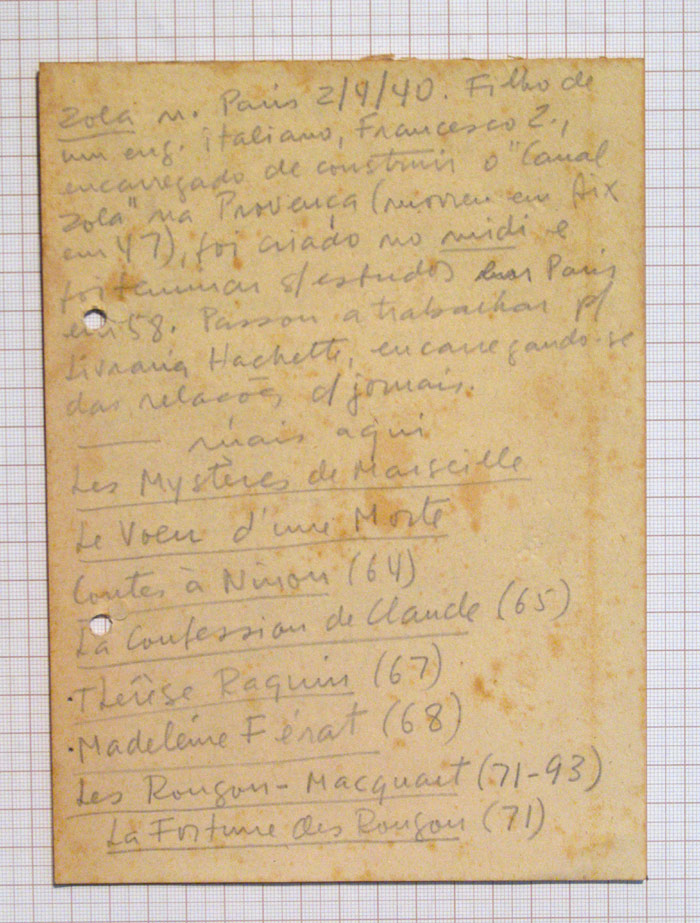 Zola n. Paris 2/4/40. Filho de
um eng. italiano, Francesco Z.,
encarregado de construir o "Canal
Zola" na Provença (morreu em Aix
em 47), foi criado no midi e
foi terminar s/ estudos em Paris
em 58. Passou a trabalhar p/
Livraria Hachette, encarregando-se
das relações c/ jornais.
—— mais aqui
Les Mystères de Marseille
Le Voeu d'une Morte
Contes à Ninon (64)
La Confession de Claude (65)
· Thérèse Raquin (67)
· Madeleine Férat (68)
Les Rougon-Macquart (71-93)
La Fortune des Rougon (71)